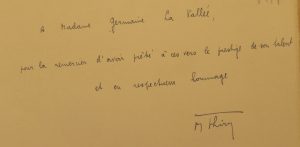 A Madame Germaine La Vallée,
pour la remercier d'avoir prêté à ces vers le prestige de son talent
et en respectueux hommage
M Thiry